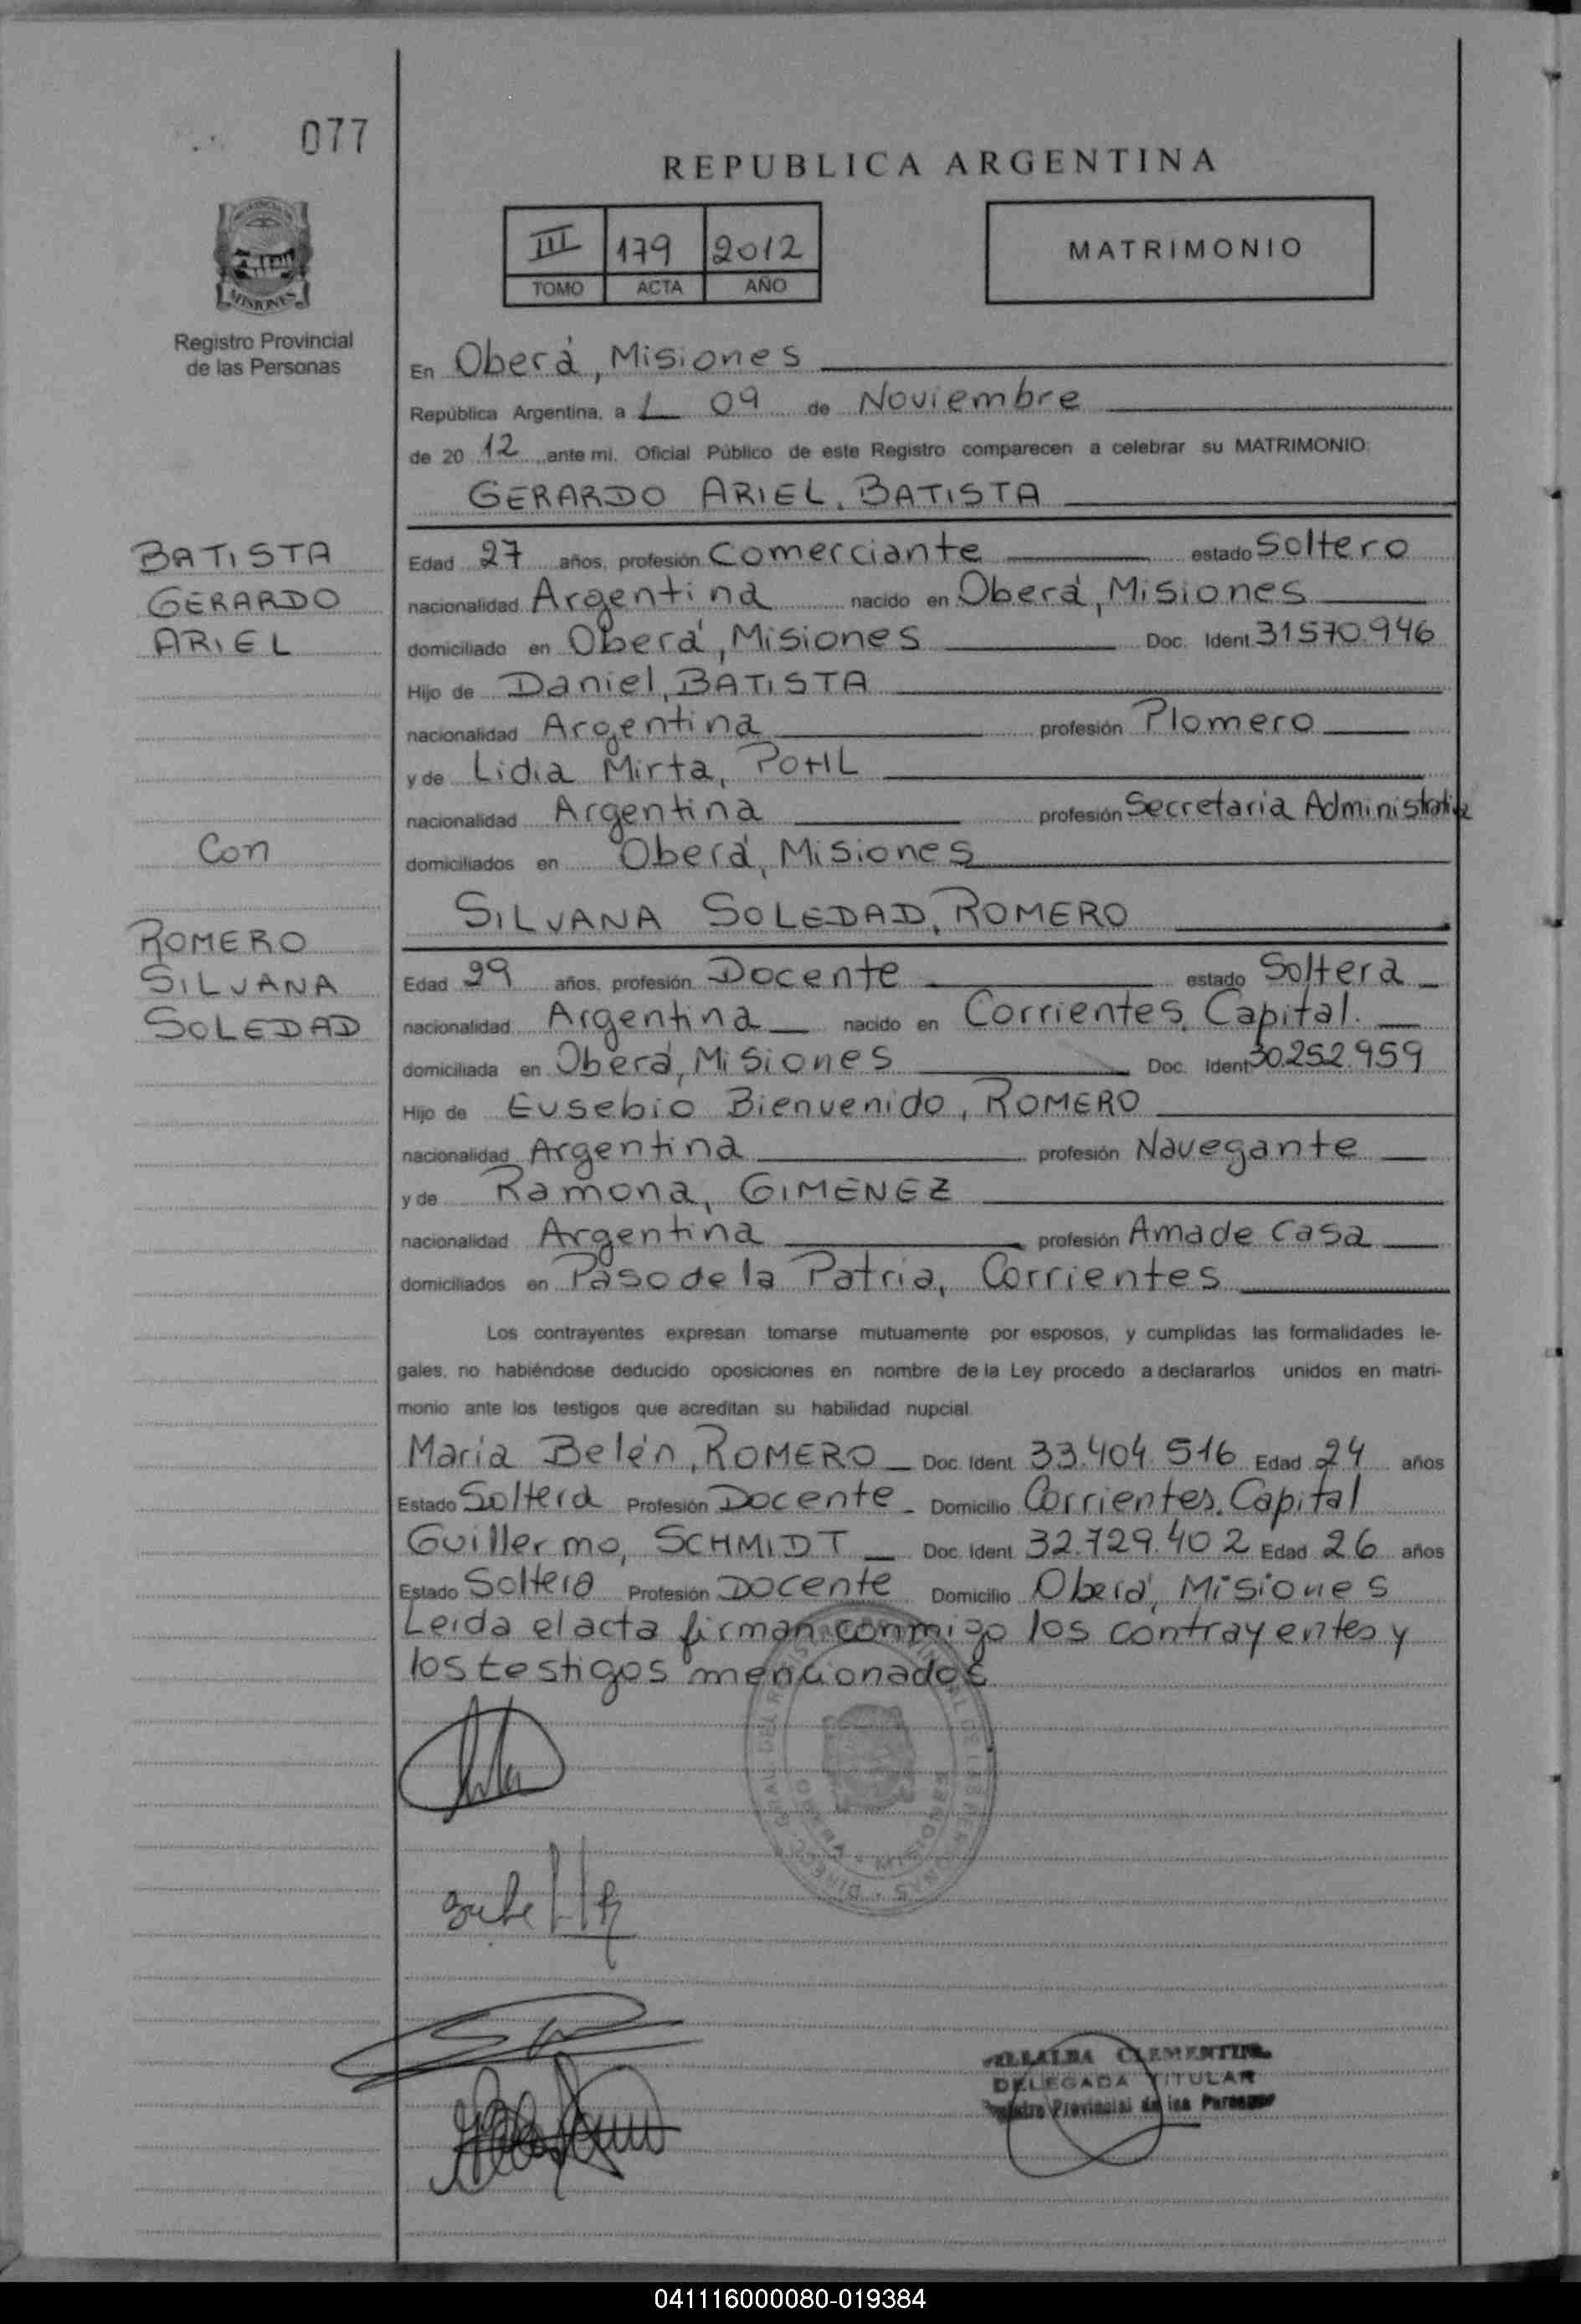 077
REPUBLICA ARGENTINA
III 179 2012
TOMO ACTA AÑO
MATRIMONIO
MISIONES
Registro Provincial
de las Personas
En Oberá, Misiones
República Argentina, a L 09 de Noviembre
de 20 12 ante mi, Oficial Público de este Registro comparecen a celebrar su MATRIMONIO:
GERARDO ARIEL, BATISTA
BATISTA
GERARDO
ARIEL
Edad 27 años, profesión Comerciante estado Soltero
nacionalidad Argentina nacido en Oberá, Misiones
domiciliado en Oberá, Misiones Doc. Ident. 31570.946
Hijo de Daniel, BATISTA
nacionalidad Argentina profesión Plomero
y de Lidia Mirta, POHL
nacionalidad Argentina profesión Secretaria Administrativa
domiciliados en Oberá, Misiones
Con
SILVANA SOLEDAD, ROMERO
ROMERO
SILVANA
SOLEDAD
Edad 29 años, profesión Docente estado Soltera
nacionalidad Argentina nacido en Corrientes, Capital.
domiciliada en Oberá, Misiones Doc. Ident 30.252.959
Hijo de Eusebio Bienvenido, ROMERO
nacionalidad Argentina profesión Navegante
y de Ramona, GIMENEZ
nacionalidad Argentina profesión Ama de Casa
domiciliados en Paso de la Patria, Corrientes
Los contrayentes expresan tomarse mutuamente por esposos, y cumplidas las formalidades le-
gales, no habiéndose deducido oposiciones en nombre de la Ley procedo a declararlos unidos en matri-
monio ante los testigos que acreditan su habilidad nupcial.
María Belén, ROMERO Doc. Ident. 33.404.516 Edad 24 años
Estado Soltera Profesión Docente Domicilio Corrientes, Capital
Guillermo, SCHMIDT Doc. Ident. 32.729.402 Edad 26 años
Estado Soltero Profesión Docente Domicilio Oberá, Misiones
Leida el acta firman conmigo los contrayentes y
los testigos mencionados
VILLALBA CLEMENTINA
DELEGADA TITULAR
Registro Provincial de las Personas
041116000080-019384